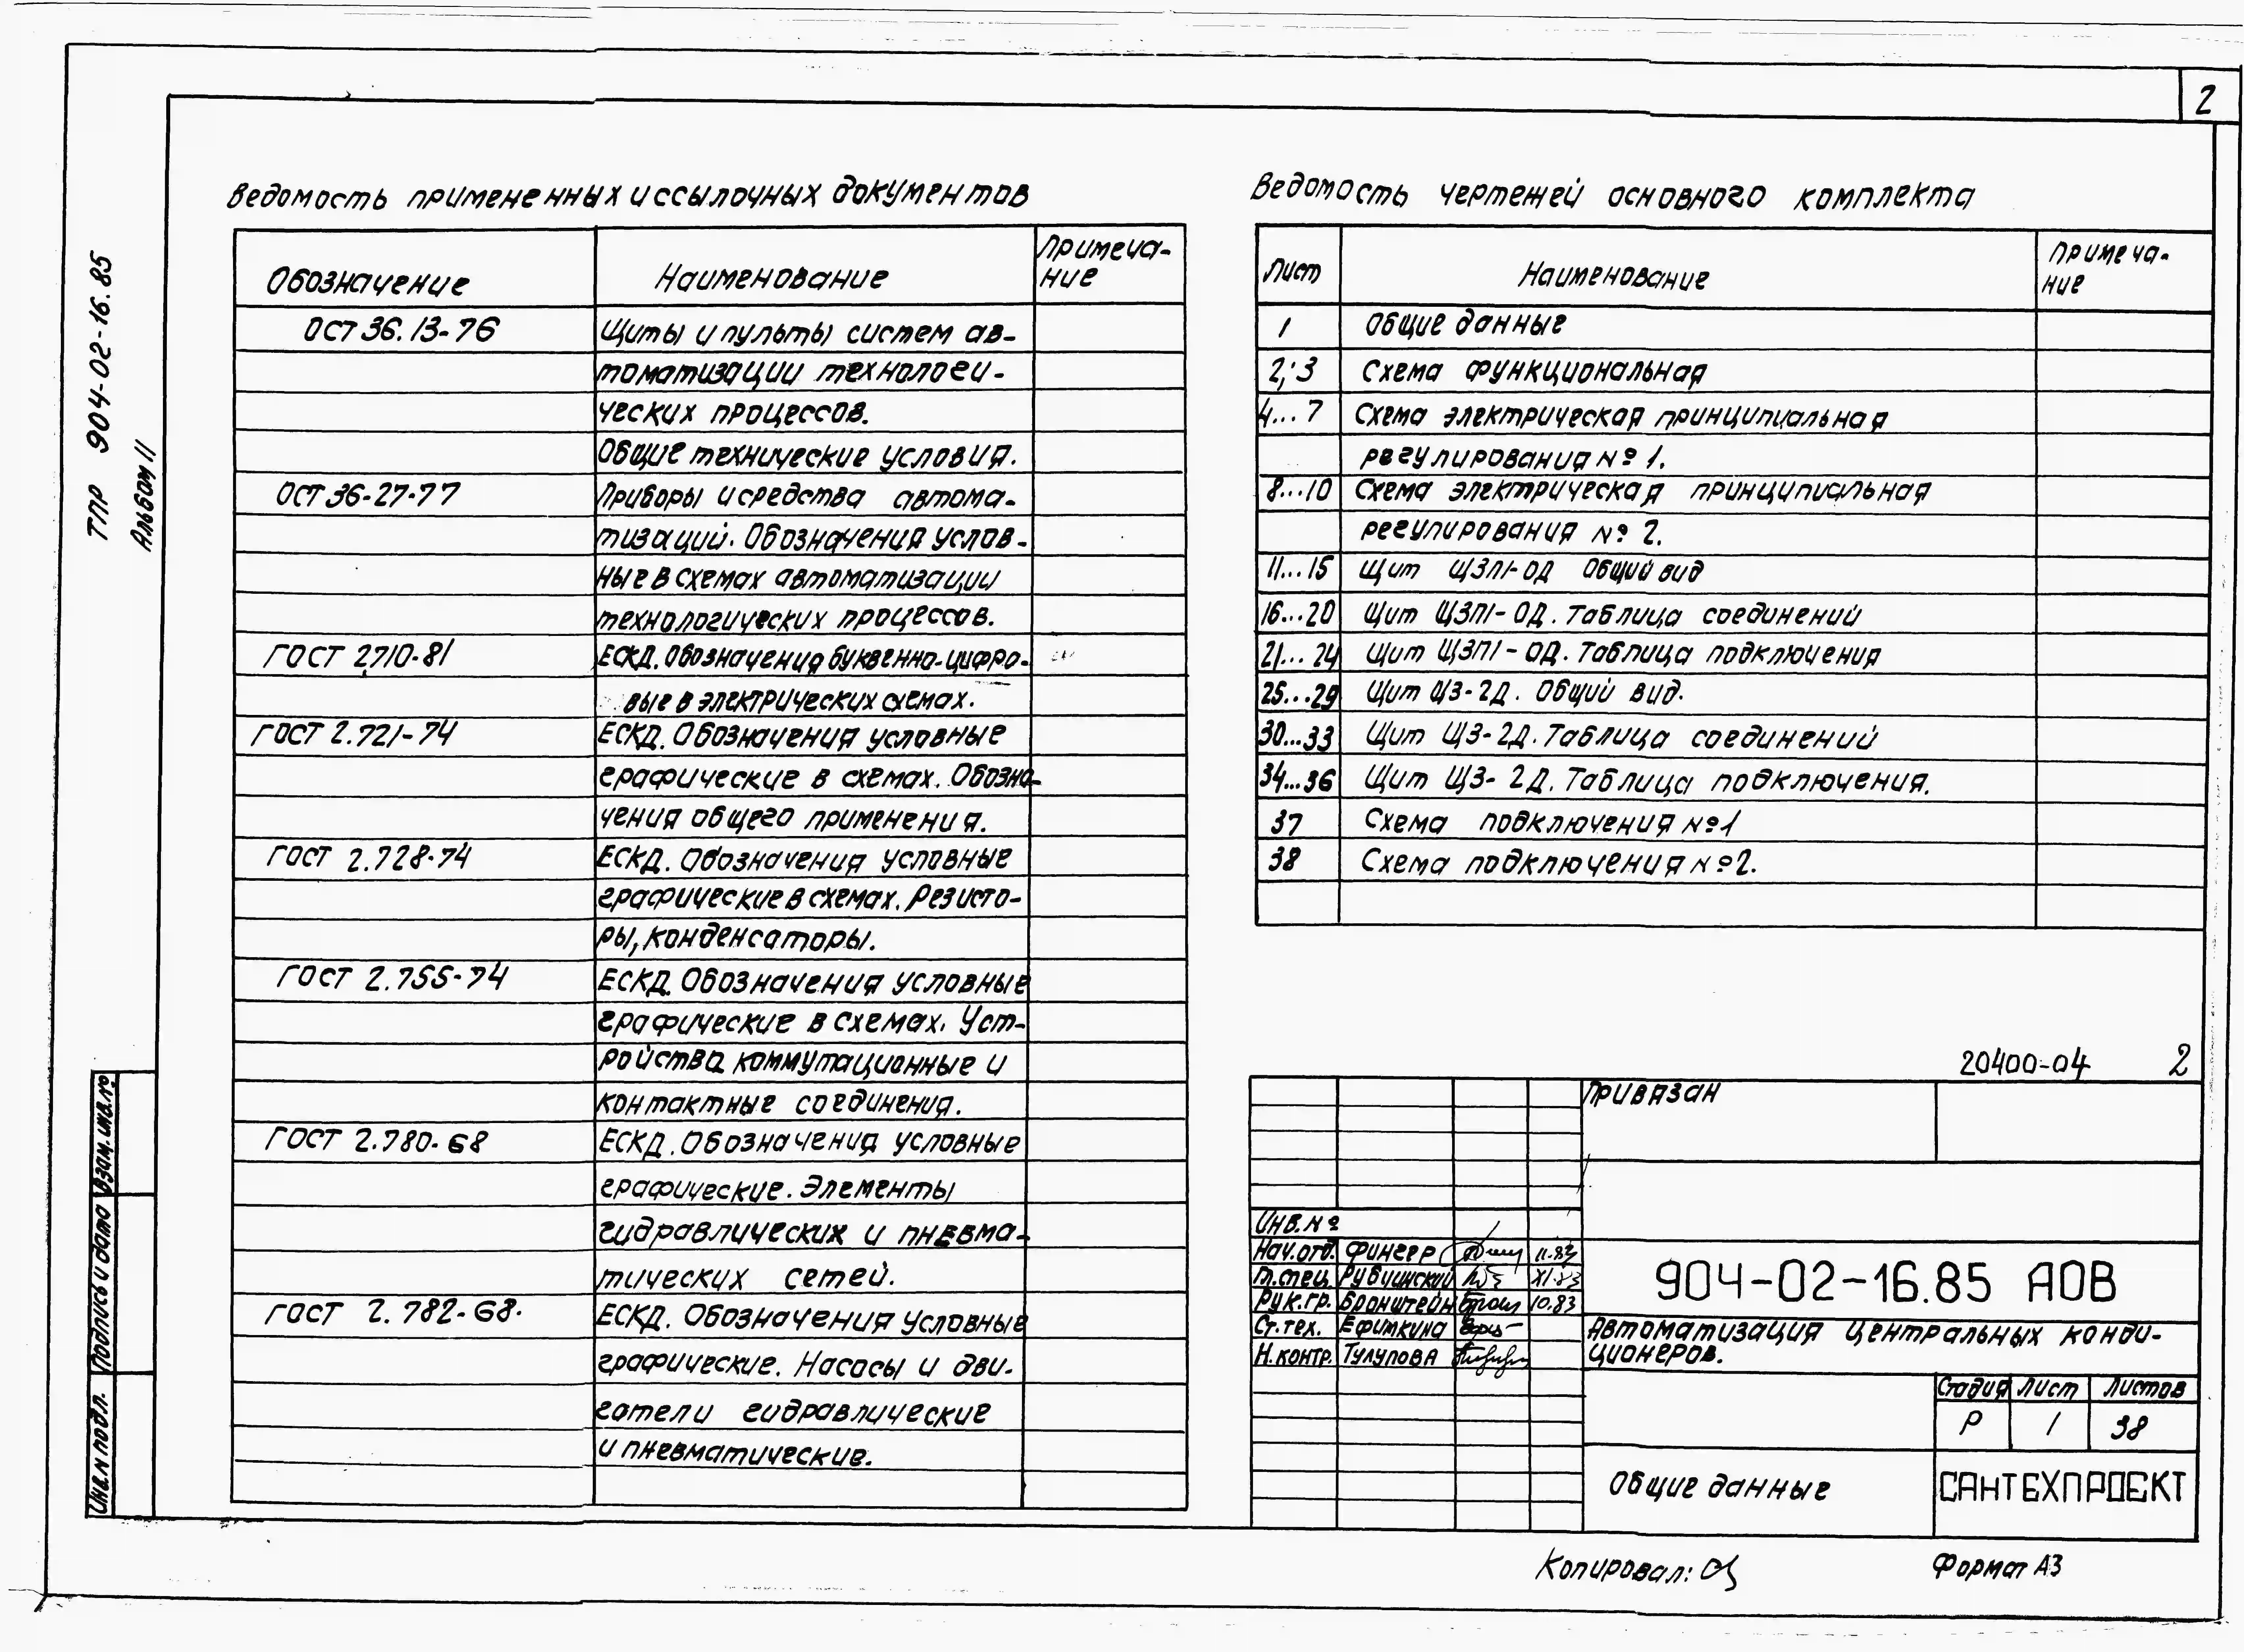 2
ТПР 904-02-16.85
Альбом II
Ведомость примененных и ссылочных документов
Обозначение
Наименование
Примеча-
ние
ОСТ 36.13-76
Щиты и пульты систем ав-
томатизации технологи-
ческих процессов.
Общие технические условия.
ОСТ 36-27-77
Приборы и средства автома-
тизаций. Обозначения услов-
ные в схемах автоматизации
технологических процессов.
ГОСТ 2710-81
ЕСКД. Обозначения буквенно-цифро-
вые в электрических схемах.
ГОСТ 2.721-74
ЕСКД. Обозначения условные
графические в схемах. Обозна-
чения общего применения.
ГОСТ 2.728-74
ЕСКД. Обозначения условные
графические в схемах. Резисто-
ры, конденсаторы.
ГОСТ 2.755-74
ЕСКД. Обозначения условные
графические в схемах. Уст-
ройства коммутационные и
контактные соединения.
ГОСТ 2.780-68
ЕСКД. Обозначения условные
графические. Элементы
гидравлических и пневма-
тических сетей.
ГОСТ 2.782-68.
ЕСКД. Обозначения условные
графические. Насосы и дви-
гатели гидравлические
и пневматические.
Ведомость чертежей основного комплекта
Лист
Наименование
Примеча-
ние
1 Общие данные
2; 3 Схема функциональная
4...7 Схема электрическая принципиальная
регулирования №1.
8...10 Схема электрическая принципиальная
регулирования №2.
11...15 Щит ЩЗП1-ОД Общий вид
16...20 Щит ЩЗП1-ОД. Таблица соединений
21...24 Щит ЩЗП1-ОД. Таблица подключения
25...29 Щит ЩЗ-2Д. Общий вид.
30...33 Щит ЩЗ-2Д. Таблица соединений
34...36 Щит ЩЗ-2Д. Таблица подключения.
37 Схема подключения №1
38 Схема подключения №2.
20400-04 2
Привязан
Инв.№
Нач.отд. Фингер 11.83
Гл.спец. Рубчинский XI.83
Рук.гр. Бронштейн 10.83
Ст.тех. Ефимкина
Н.контр. Тулупова
904-02-16.85 АОВ
Автоматизация центральных конди-
ционеров.
Стадия Лист Листов
Р 1 38
Общие данные
САНТЕХПРОЕКТ
Взам.инв.№
Подпись и дата
Инв.№ подл.
Копировал:
Формат А3